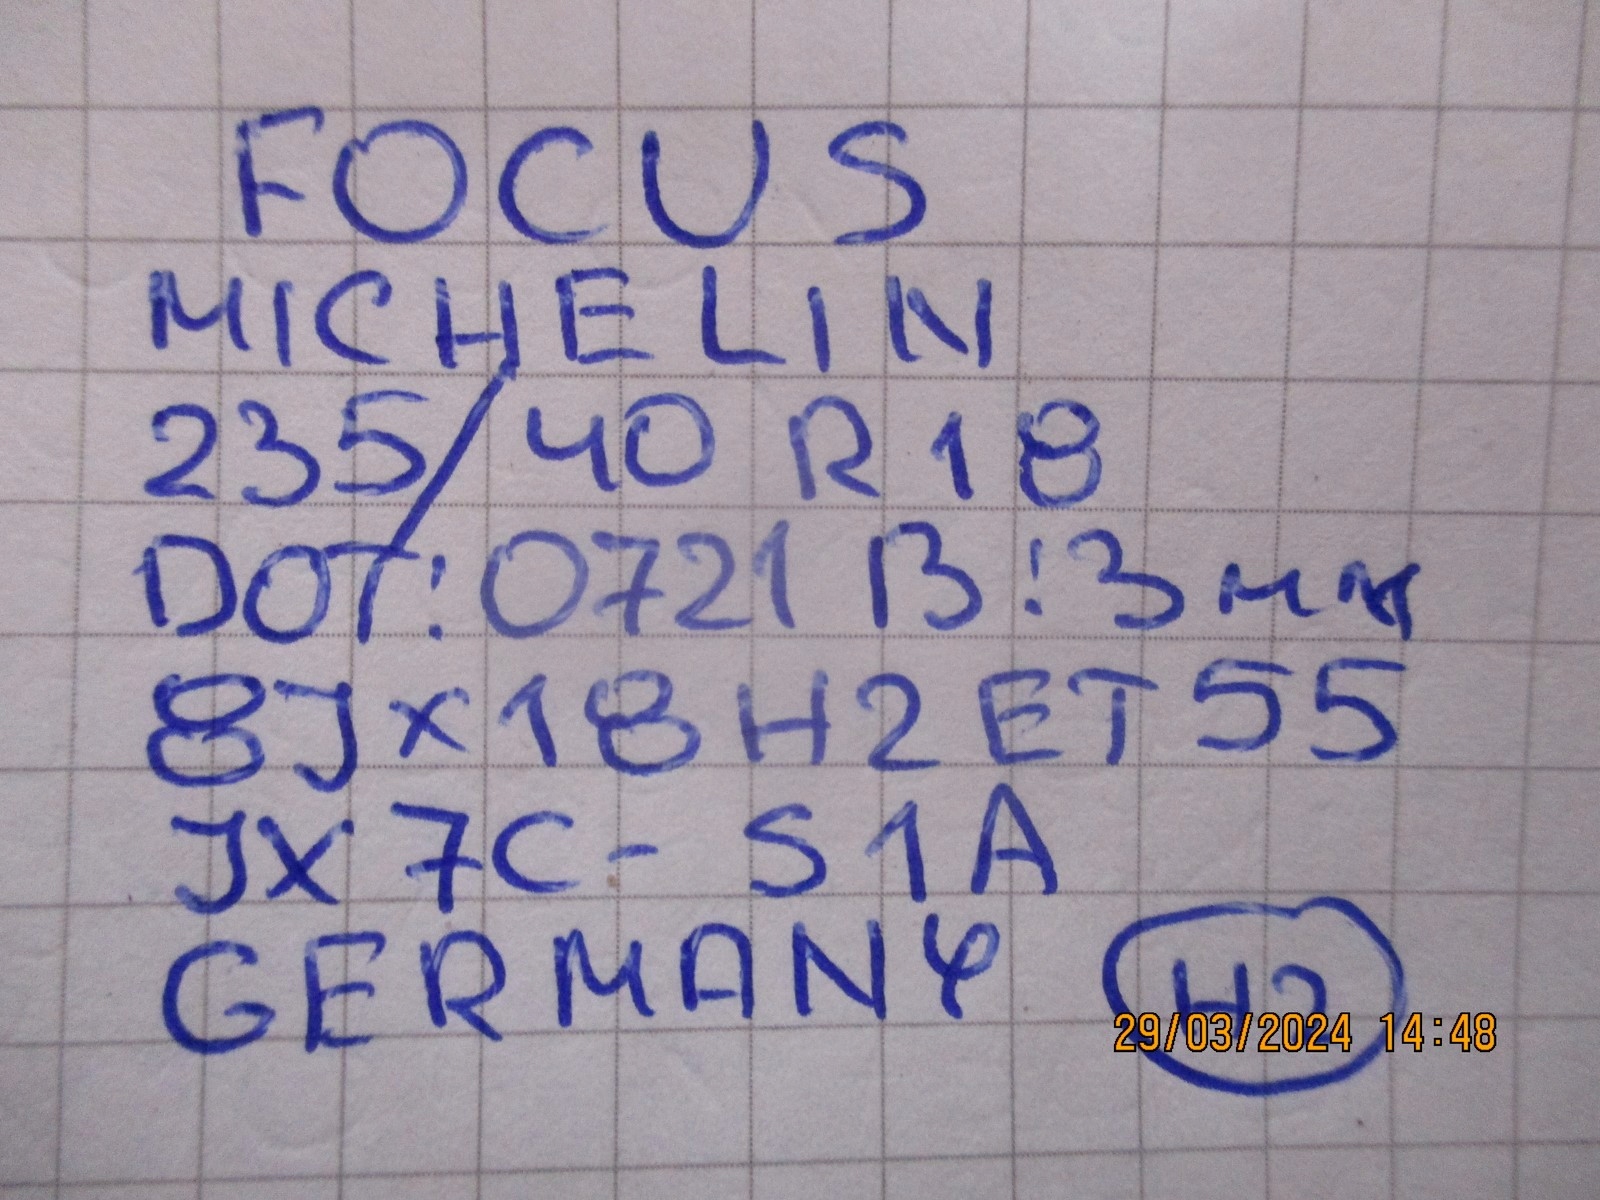 FOCUS
MICHELIN
235/40 R18
DOT: 0721 B:3мм
8Jx18H2ET55
JX7C-S1A
GERMANY
H2
29/03/2024 14:48